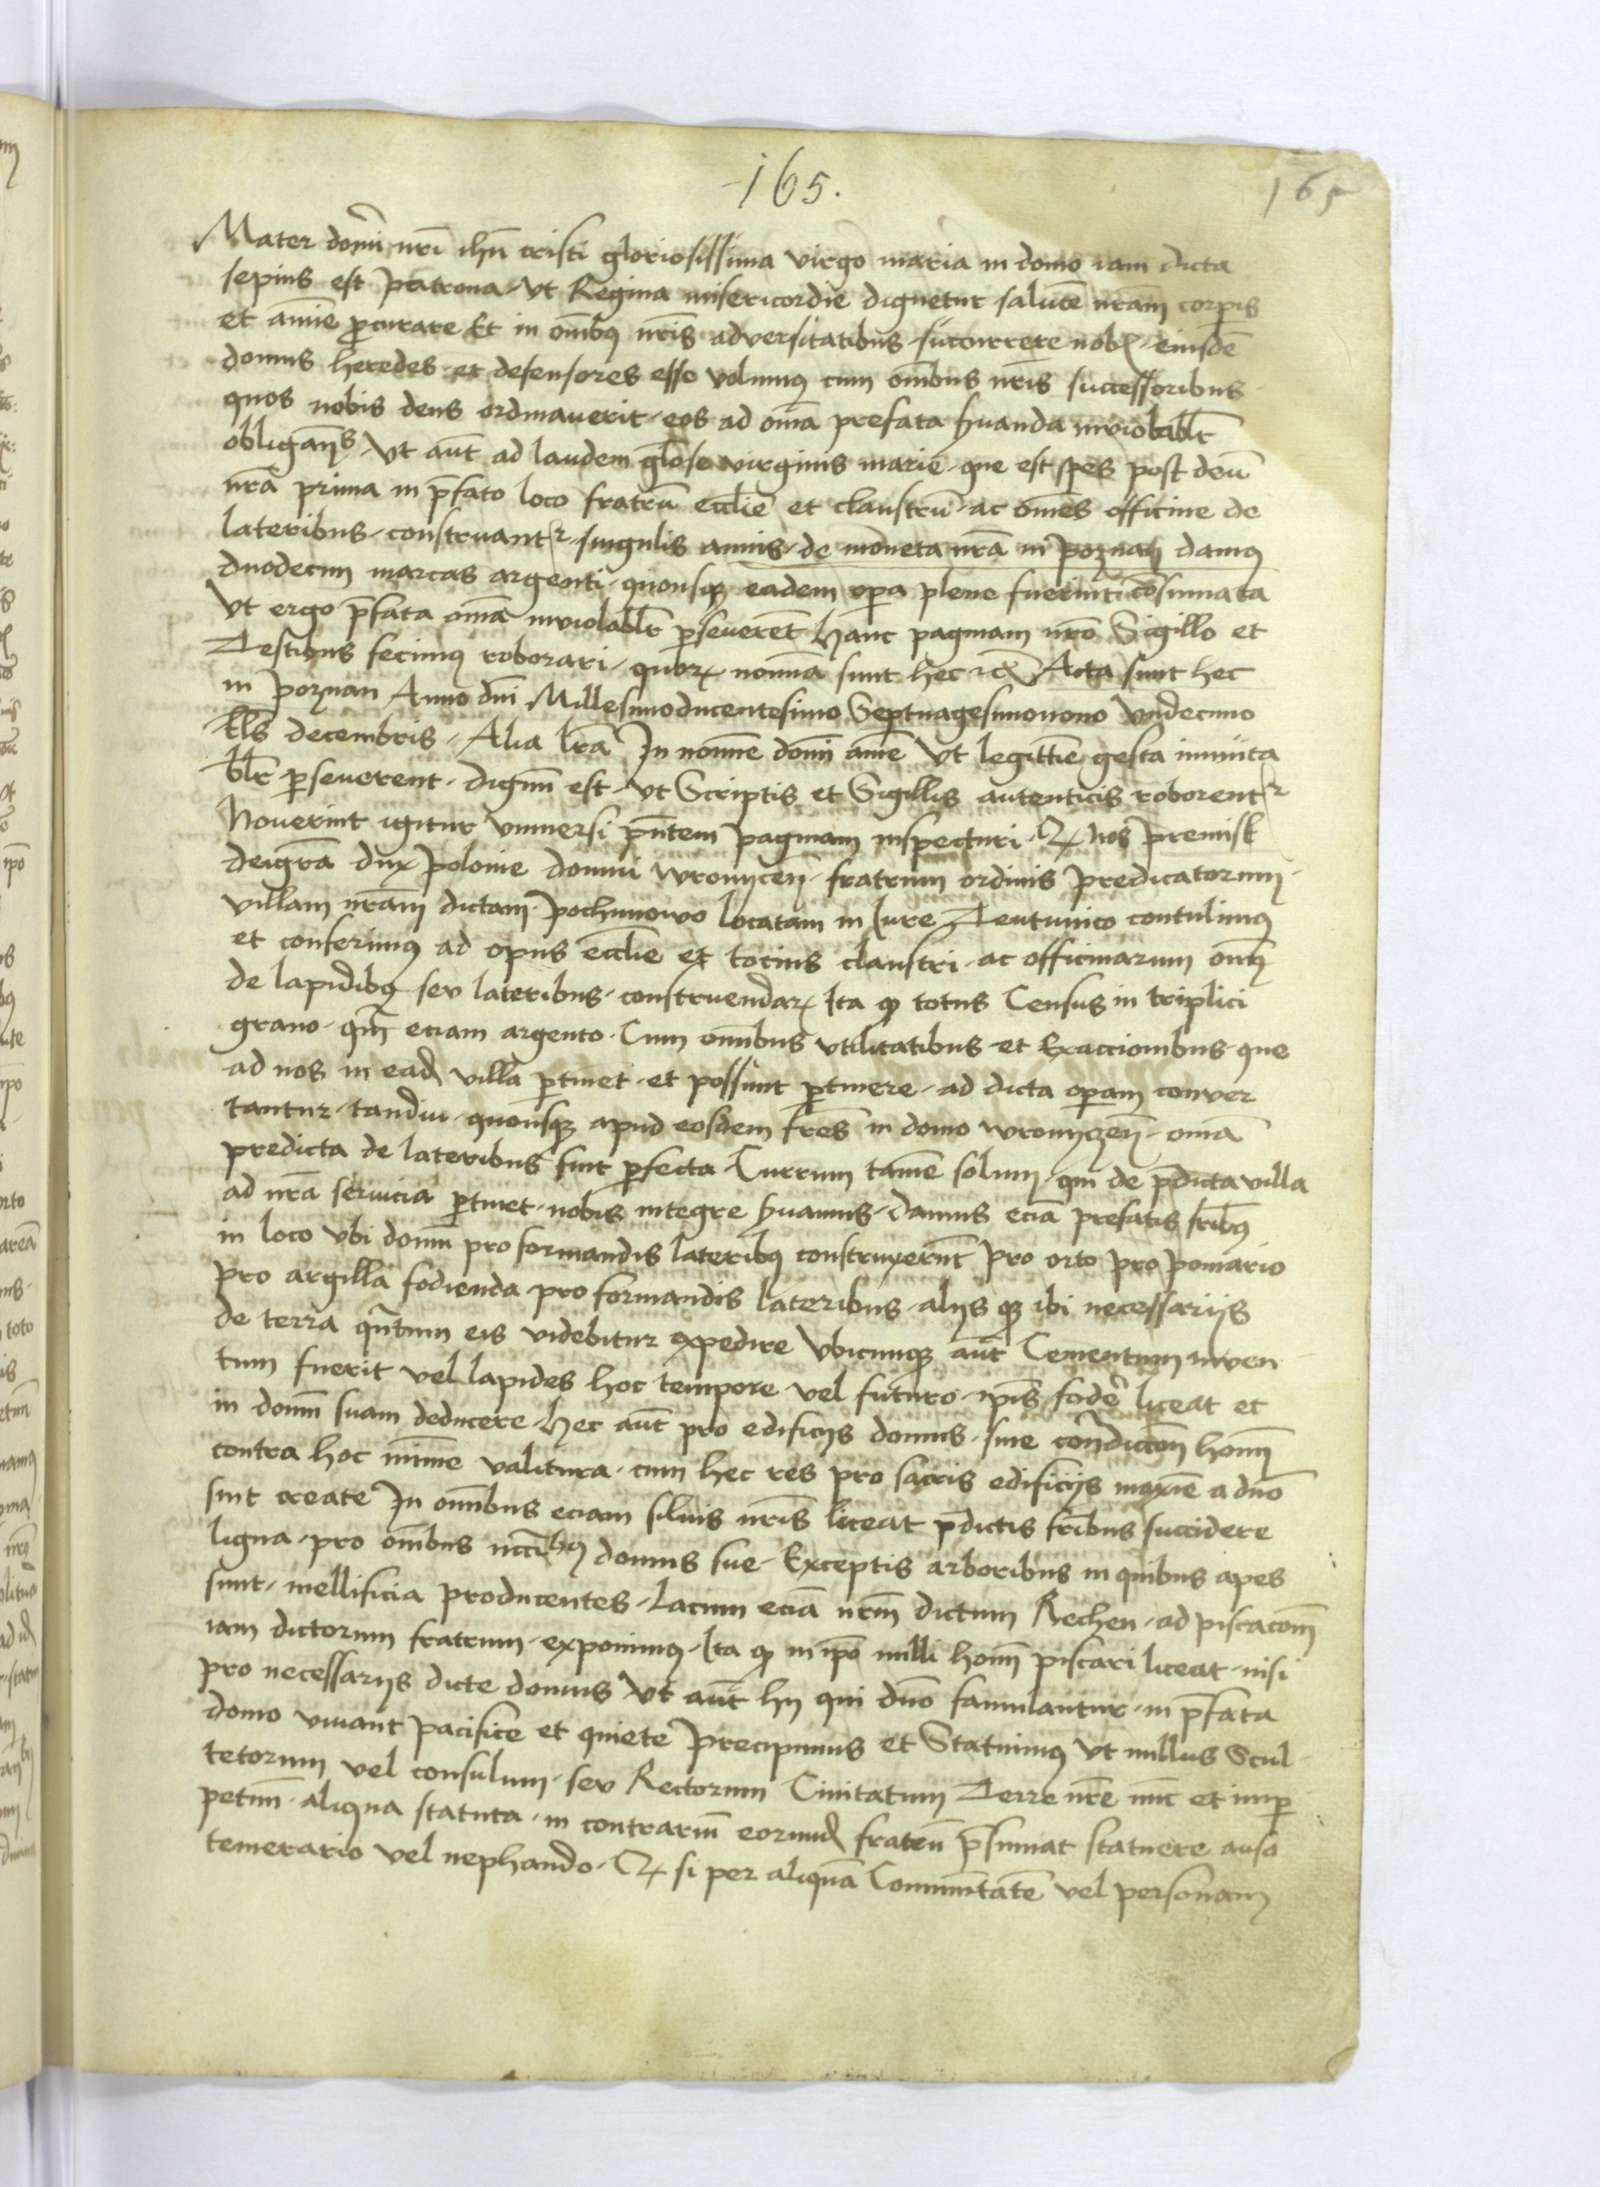 165.
165
Mater domī nrī ihū cristi gloriosissima virgo maria in domo iam dicta
sepius est patrona. Ut Regina misericordie dignetur salutē nrām corpis
et anīe procurare Et in omībꝰ nrīs adversitatibus. succurrere nobꝭ. eiusdē
domus heredes. et defensores esse volumꝰ cum omībus nrīs successoribus.
quos nobis deus ordinaverit. eos ad omīa prefata suanda inviolabilr̄
obligan̄s. Ut aūt ad laudem glose virginis marie. que est spes post deū
nrā prima in pfato loco fratrū ecclie et claustrū. ac omēs officine de
lateribus. construantr. singulis annis. de moneta nrā in poznan damꝰ
duodecim marcas argenti. quousqꝫ eadem opa plene fuerint cōsumata
Ut ergo pfata omīa inviolablr̄ pseverēt hanc paginam nrō Sigillo et
Testibus fecimꝰ roborari. quorꝝ nomīa sunt hec ⁊cꝭ Acta sunt hec
in poznan Anno dnī Millesimoducentesimo Septuagesimonono undecimo
klīs decembris. Alia lrā In nomīe domī amē Ut legittīe gesta immuta
blr̄ pseverent. dignū est. ut Scriptis et Sigillis autenticis roborentr
Noverint igitur universi pn̄tem paginam inspecturi. Qꝫ nos premisl
deigrā dux polonie domui wronyceṅ. fratrum ordinis predicatorum.
villam nrām dictam. pochunowo locatam in Iure Teutunico contulimꝰ
et conferimꝰ ad opus ecclie et tocius claustri. ac officinarum omī
de lapidibꝰ seu lateribus. construendarꝝ Ita qꝫ totus Census in triplici
grano. qm̄ eciam argento. Cum omībus utilitatibus et Exaccionibus. que
ad nos in eadꝫ villa ptinet. et possunt ptinere. ad dicta opam conver
tantur. tandiu. quousqꝫ apud eosdem frēs in domo wronyczeṅ. omīa
predicta de lateribus sint pfecta. Currum tamē solum. qui de pdicta villa
ad nrā servicia ptinet. nobis integre suamus. damus eciā prefatis fribꝰ
in loco ubi domū pro formandis lateribꝰ construxerūt pro orto pro pomario
pro argilla fodienda. pro formandis lateribus. alijs qꝫ ibi necessarijs
de terra qn̄tum eis videbitur expedire Ubicumqꝫ aūt Cementum inven
tum fuerit vel lapides hoc tempore vel futuro. ipīs fodēr liceat et
in domū suam deducere. hec aūt pro edificijs domus. sine contradiccōn homī
contra hoc minīe valitura. cum hec res pro sacris edificijs maxīe a dnō
sint create In omībus eciam silvis nrīs liceat pdictis fribus succidere
ligna. pro omībus nccīibꝰ domus sue. Exceptis arboribus in quibus apes
sunt. mellificia producentes. Lacum eciā nrm̄ dictum Rechen. ad piscacōm
iam dictorum fratrum. exponimꝰ. Ita qꝫ in ipō nulli homī piscari liceat. nisi
pro necessarijs dicte domus Ut aūt hij qui dnō famulantur. in pfata
domo vivant pacifice et quiete Precipimus et Statuimꝰ ut nullus Scul
tetorum vel consulum. seu Rectorum Civitatum Terre nrē nūc et imp
petuū. aliqua statuta. in contrariū eorundꝫ fratrū psumat statuere auso
temerario vel nephando. Qꝫ si per aliquā Commūitatē vel personam